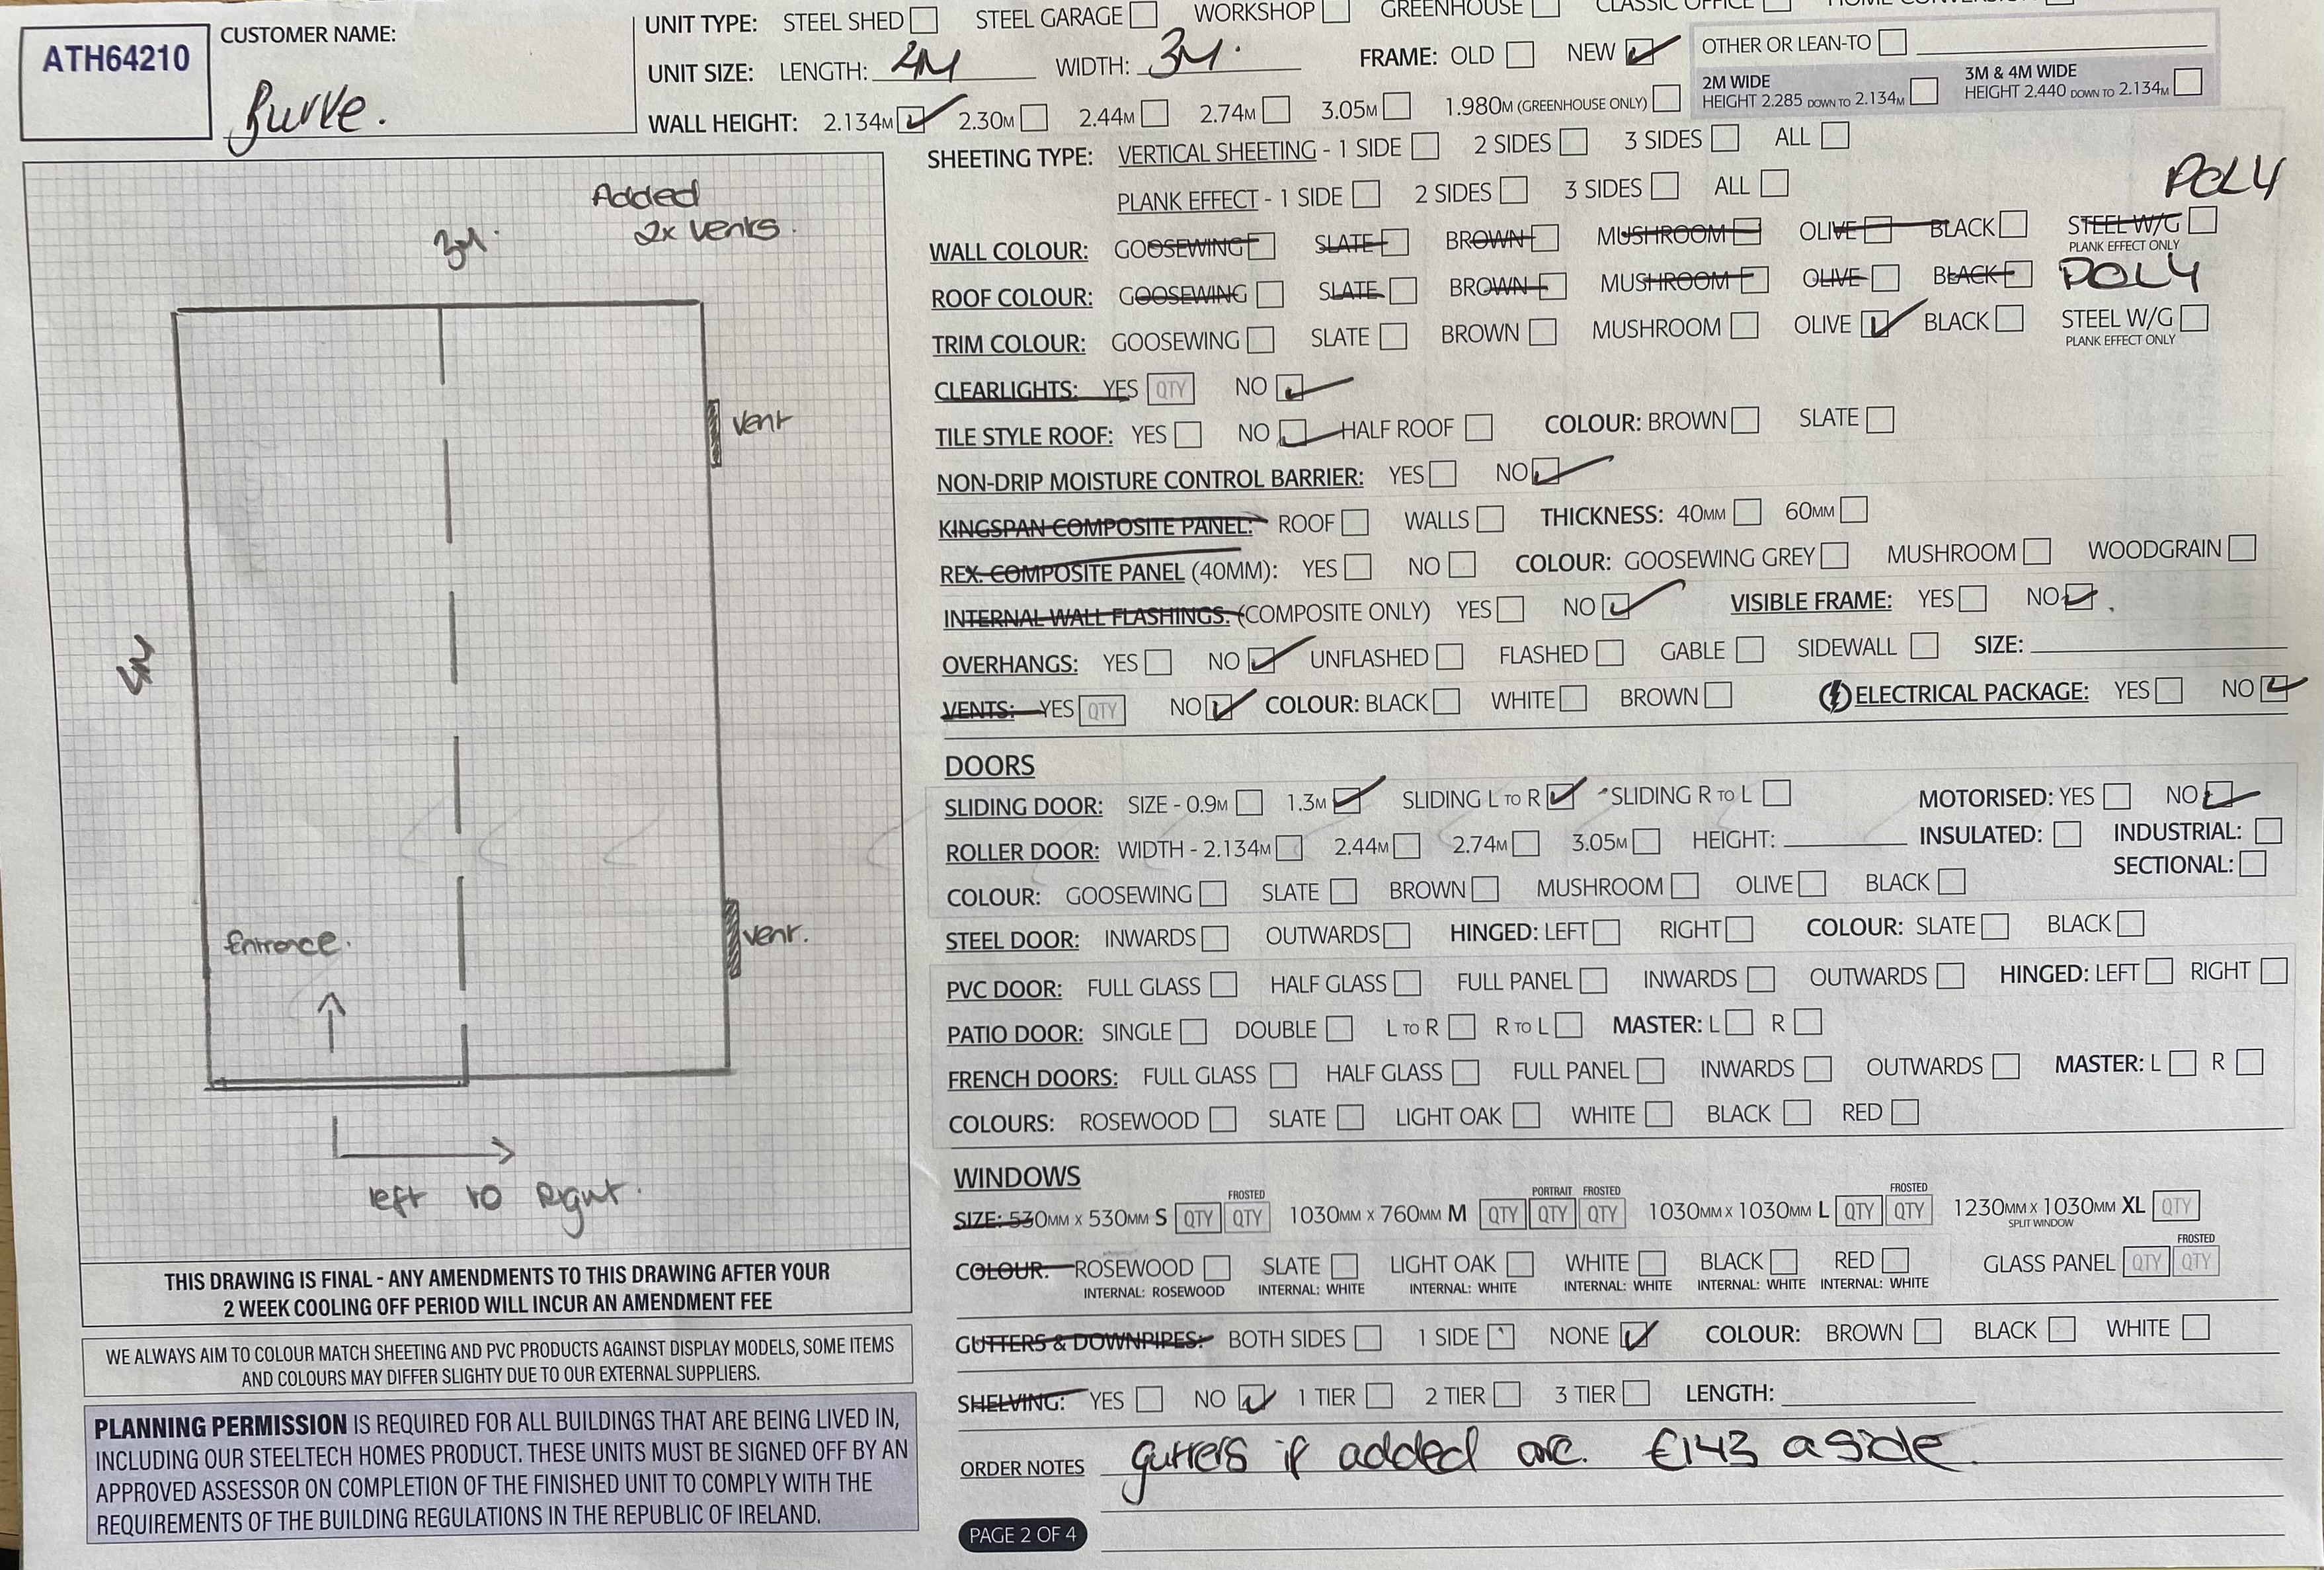 ATH64210
CUSTOMER NAME:
Burke.
UNIT TYPE: STEEL SHED STEEL GARAGE WORKSHOP GREENHOUSE CLASSIC OFFICE HOME CONVERSION
UNIT SIZE: LENGTH: 4M WIDTH: 3M. FRAME: OLD NEW
OTHER OR LEAN-TO
WALL HEIGHT: 2.134M 2.30M 2.44M 2.74M 3.05M 1.980M (GREENHOUSE ONLY)
2M WIDE
HEIGHT 2.285 DOWN TO 2.134M
3M & 4M WIDE
HEIGHT 2.440 DOWN TO 2.134M
Added
2x vents.
3M.
vent
4M
Entrance.
vent.
left to Right.
THIS DRAWING IS FINAL - ANY AMENDMENTS TO THIS DRAWING AFTER YOUR
2 WEEK COOLING OFF PERIOD WILL INCUR AN AMENDMENT FEE
WE ALWAYS AIM TO COLOUR MATCH SHEETING AND PVC PRODUCTS AGAINST DISPLAY MODELS, SOME ITEMS
AND COLOURS MAY DIFFER SLIGHTY DUE TO OUR EXTERNAL SUPPLIERS.
PLANNING PERMISSION IS REQUIRED FOR ALL BUILDINGS THAT ARE BEING LIVED IN,
INCLUDING OUR STEELTECH HOMES PRODUCT. THESE UNITS MUST BE SIGNED OFF BY AN
APPROVED ASSESSOR ON COMPLETION OF THE FINISHED UNIT TO COMPLY WITH THE
REQUIREMENTS OF THE BUILDING REGULATIONS IN THE REPUBLIC OF IRELAND.
SHEETING TYPE: VERTICAL SHEETING - 1 SIDE 2 SIDES 3 SIDES ALL
PLANK EFFECT - 1 SIDE 2 SIDES 3 SIDES ALL
POLY
WALL COLOUR: GOOSEWING SLATE BROWN MUSHROOM OLIVE BLACK STEEL W/G
PLANK EFFECT ONLY
ROOF COLOUR: GOOSEWING SLATE BROWN MUSHROOM OLIVE BLACK POLY
TRIM COLOUR: GOOSEWING SLATE BROWN MUSHROOM OLIVE BLACK STEEL W/G
PLANK EFFECT ONLY
CLEARLIGHTS: YES QTY NO
TILE STYLE ROOF: YES NO HALF ROOF COLOUR: BROWN SLATE
NON-DRIP MOISTURE CONTROL BARRIER: YES NO
KINGSPAN COMPOSITE PANEL: ROOF WALLS THICKNESS: 40MM 60MM
REX. COMPOSITE PANEL (40MM): YES NO COLOUR: GOOSEWING GREY MUSHROOM WOODGRAIN
INTERNAL WALL FLASHINGS. (COMPOSITE ONLY) YES NO VISIBLE FRAME: YES NO
OVERHANGS: YES NO UNFLASHED FLASHED GABLE SIDEWALL SIZE:
VENTS: YES QTY NO COLOUR: BLACK WHITE BROWN ELECTRICAL PACKAGE: YES NO
DOORS
SLIDING DOOR: SIZE - 0.9M 1.3M SLIDING L TO R SLIDING R TO L MOTORISED: YES NO
ROLLER DOOR: WIDTH - 2.134M 2.44M 2.74M 3.05M HEIGHT: INSULATED: INDUSTRIAL:
SECTIONAL:
COLOUR: GOOSEWING SLATE BROWN MUSHROOM OLIVE BLACK
STEEL DOOR: INWARDS OUTWARDS HINGED: LEFT RIGHT COLOUR: SLATE BLACK
PVC DOOR: FULL GLASS HALF GLASS FULL PANEL INWARDS OUTWARDS HINGED: LEFT RIGHT
PATIO DOOR: SINGLE DOUBLE L TO R R TO L MASTER: L R
FRENCH DOORS: FULL GLASS HALF GLASS FULL PANEL INWARDS OUTWARDS MASTER: L R
COLOURS: ROSEWOOD SLATE LIGHT OAK WHITE BLACK RED
WINDOWS
FROSTED PORTRAIT FROSTED FROSTED
SIZE: 530MM X 530MM S QTY QTY 1030MM X 760MM M QTY QTY QTY 1030MM X 1030MM L QTY QTY 1230MM X 1030MM XL QTY
SPLIT WINDOW
FROSTED
COLOUR: ROSEWOOD SLATE LIGHT OAK WHITE BLACK RED GLASS PANEL QTY QTY
INTERNAL: ROSEWOOD INTERNAL: WHITE INTERNAL: WHITE INTERNAL: WHITE INTERNAL: WHITE INTERNAL: WHITE
GUTTERS & DOWNPIPES: BOTH SIDES 1 SIDE NONE COLOUR: BROWN BLACK WHITE
SHELVING: YES NO 1 TIER 2 TIER 3 TIER LENGTH:
ORDER NOTES gutters if added are. €143 a side.
PAGE 2 OF 4